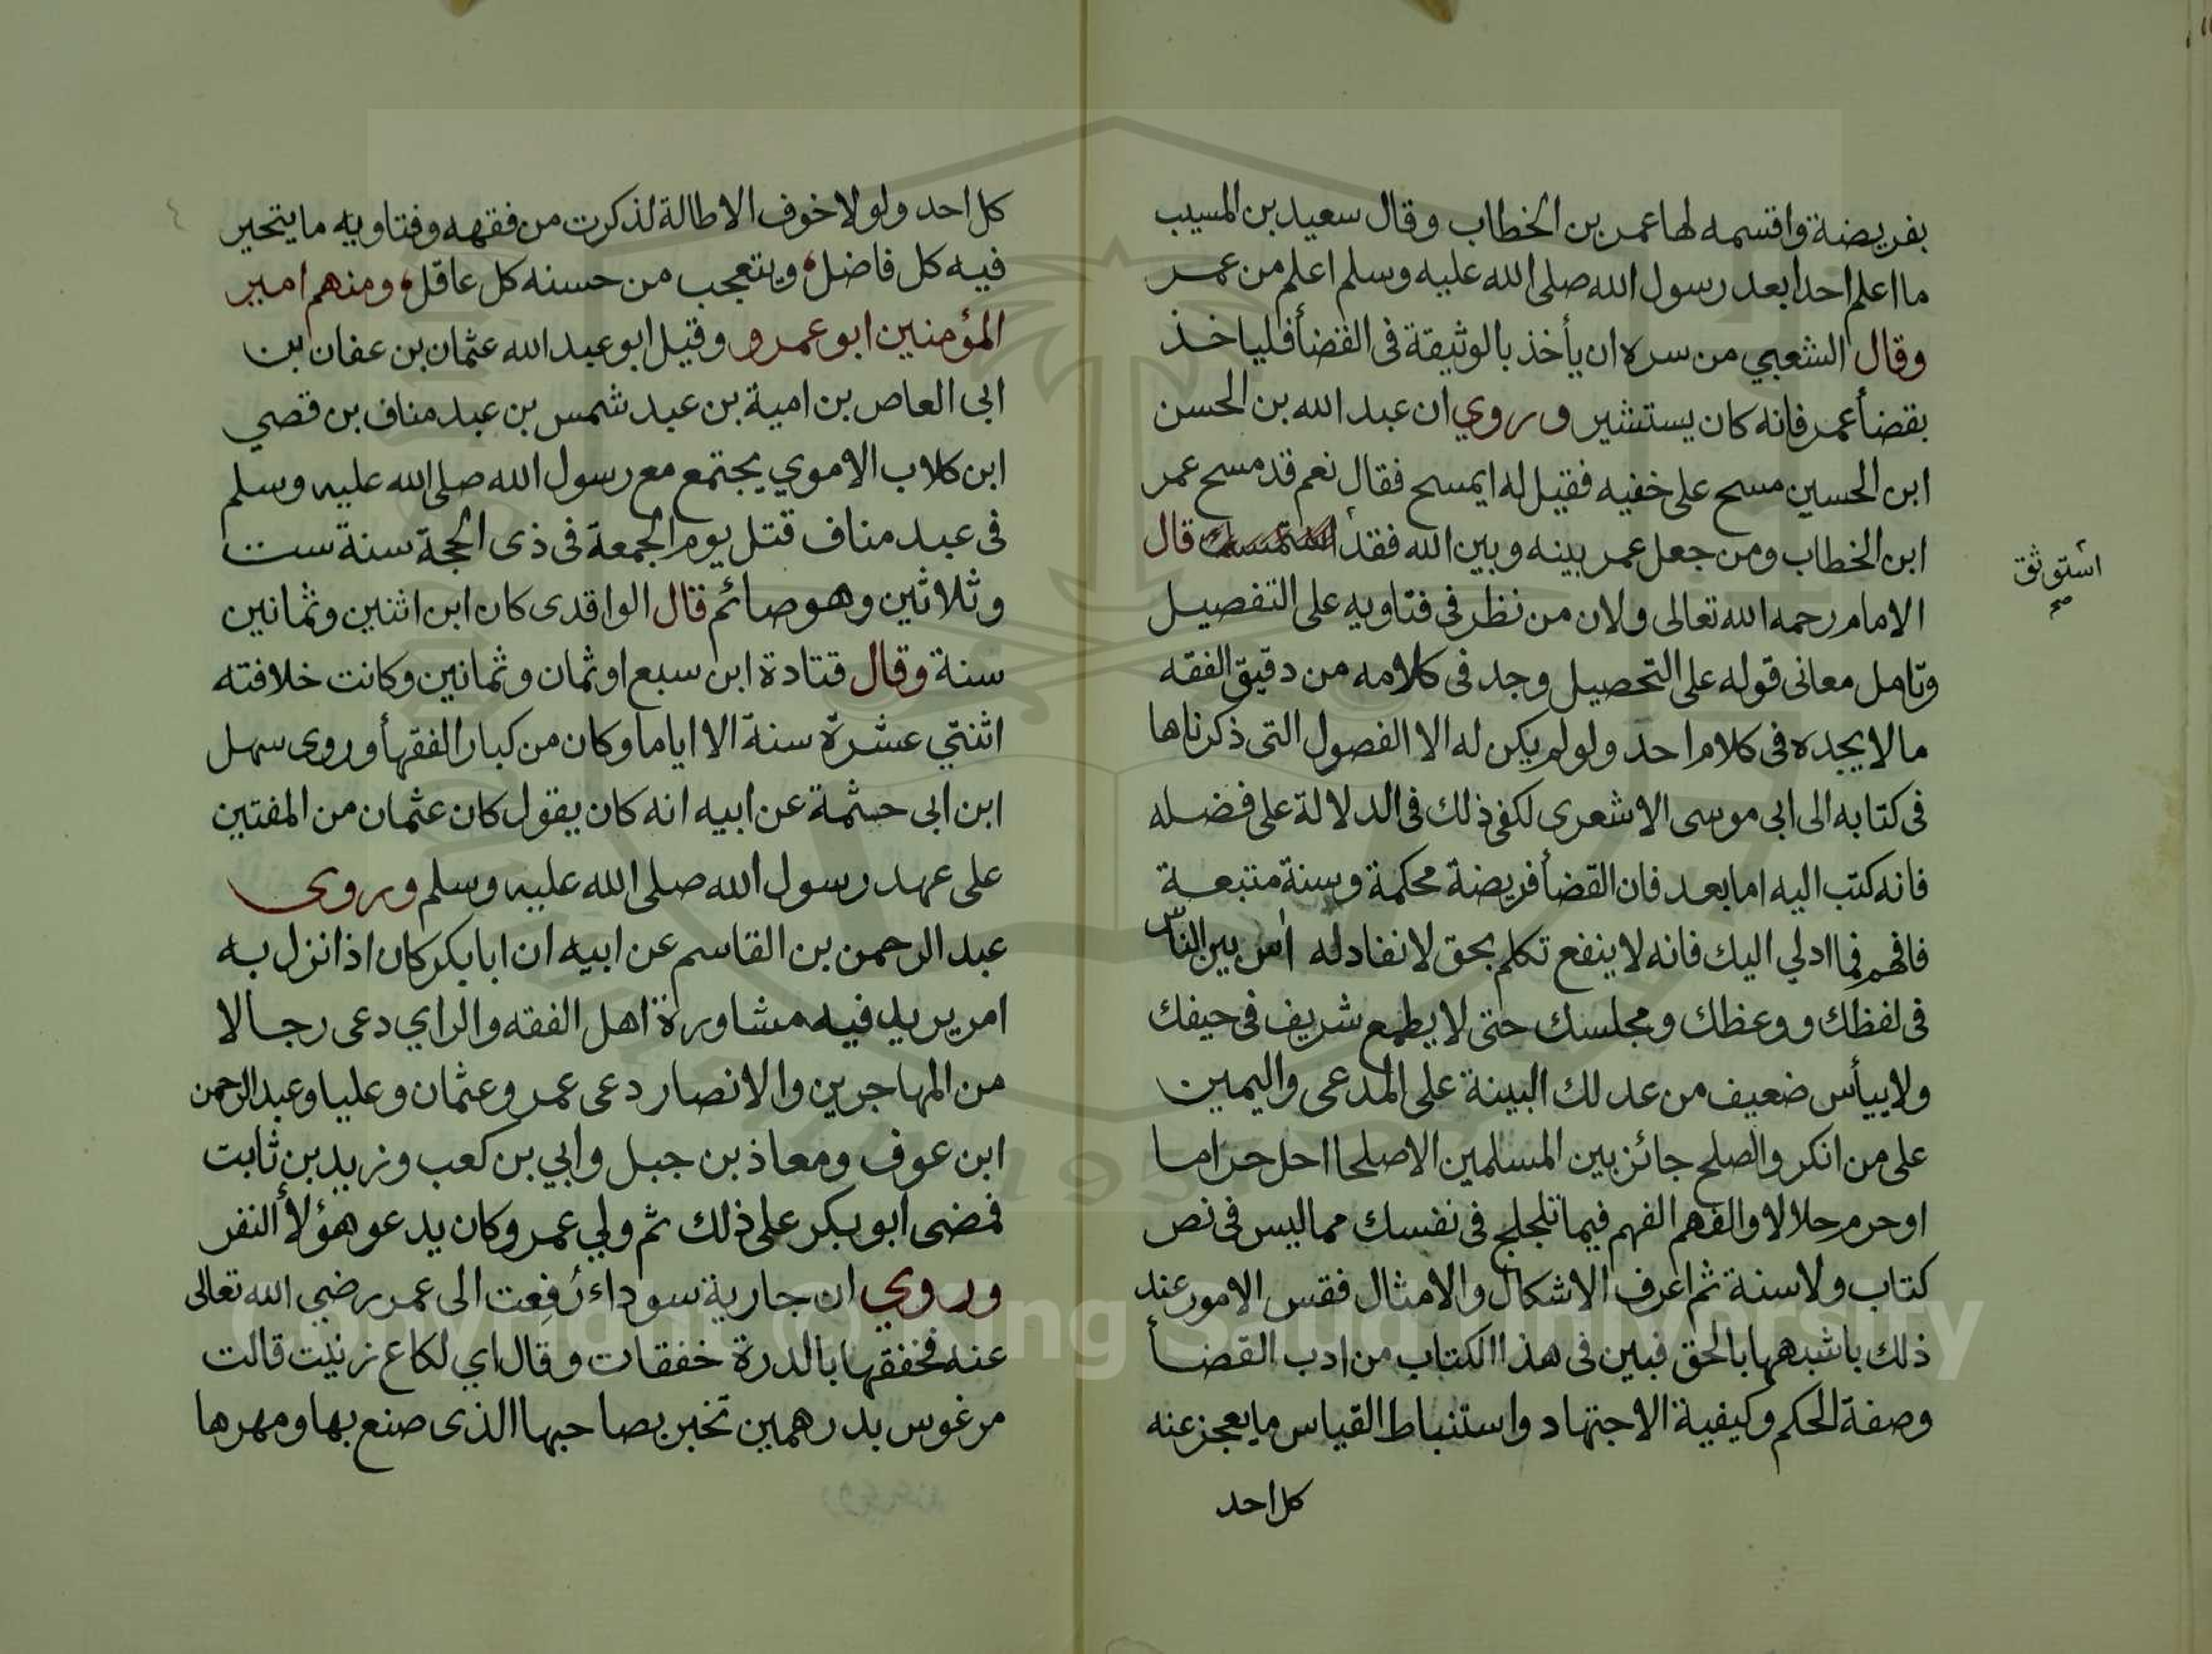 بفريضة واقسمه لها عمر بن الخطاب وقال سعيد بن المسيب
ما اعلم احدا بعد رسول الله صلى الله عليه وسلم اعلم من عمر
وقال الشعبي من سره ان يأخذ بالوثيقة فى القضأ فلياخذ
بقضأ عمر فانه كان يستشير وروي ان عبد الله بن الحسن
ابن الحسين مسح على خفيه فقيل له ايمسح فقال نعم قد مسح عمر
ابن الخطاب ومن جعل عمر بينه وبين الله فقد استمسك قال
استوثق صح
الامام رحمه الله تعالى ولان من نظر فى فتاويه على التفصيل
وتامل معانى قوله على التحصيل وجد فى كلامه من دقيق الفقه
ما لا يجده فى كلام احد ولو لم يكن له الا الفصول التى ذكرناها
فى كتابه الى ابى موسى الاشعرى لكفى ذلك فى الدلالة على فضله
فانه كتب اليه اما بعد فان القضأ فريضة محكمة وسنة متبعة
فافهم فيما ادلي اليك فانه لا ينفع تكلم بحق لا نفاد له اس بين الناس
فى لفظك ووعظك ومجلسك حتى لا يطمع شريف فى حيفك
ولا ييأس ضعيف من عدلك البينة على المدعى واليمين
على من انكر والصلح جائز بين المسلمين الا صلحا احل حراما
او حرم حلالا والفهم الفهم فيما تلجلج فى نفسك مما ليس فى نص
كتاب ولا سنة ثم اعرف الاشكال والامثال فقس الامور عند
ذلك باشبهها بالحق فبين فى هذا الكتاب من ادب القضأ
وصفة الحكم وكيفية الاجتهاد واستنباط القياس ما يعجز عنه
كل احد
كل احد ولولا خوف الاطالة لذكرت من فقهه وفتاويه ما يتحير
فيه كل فاضل، ويتعجب من حسنه كل عاقل، ومنهم امير
المؤمنين ابو عمرو وقيل ابو عبد الله عثمان بن عفان ابن
ابى العاص بن امية بن عبد شمس بن عبد مناف بن قصي
ابن كلاب الاموي يجتمع مع رسول الله صلى الله عليه وسلم
فى عبد مناف قتل يوم الجمعة فى ذى الحجة سنة ست
وثلاثين وهو صائم قال الواقدى كان ابن اثنين وثمانين
سنة وقال قتادة ابن سبع او ثمان وثمانين وكانت خلافته
اثنتي عشرة سنة الا اياما وكان من كبار الفقهأ وروى سهل
ابن ابى حثمة عن ابيه انه كان يقول كان عثمان من المفتين
على عهد رسول الله صلى الله عليه وسلم وروى
عبد الرحمن بن القاسم عن ابيه ان ابا بكر كان اذا نزل به
امر يريد فيه مشاورة اهل الفقه والراي دعى رجالا
من المهاجرين والانصار دعى عمر وعثمان وعليا وعبد الرحمن
ابن عوف ومعاذ بن جبل وابي بن كعب وزيد بن ثابت
فمضى ابو بكر على ذلك ثم ولي عمر وكان يدعو هؤلأ النفر
وروي ان جارية سوداء رُفِعت الى عمر رضي الله تعالى
عنه فخفقها بالدرة خفقات وقال اي لكاع زنيت قالت
مرغوس بدرهمين تخبر بصاحبها الذى صنع بها ومهرها
Copyright © King Saud University